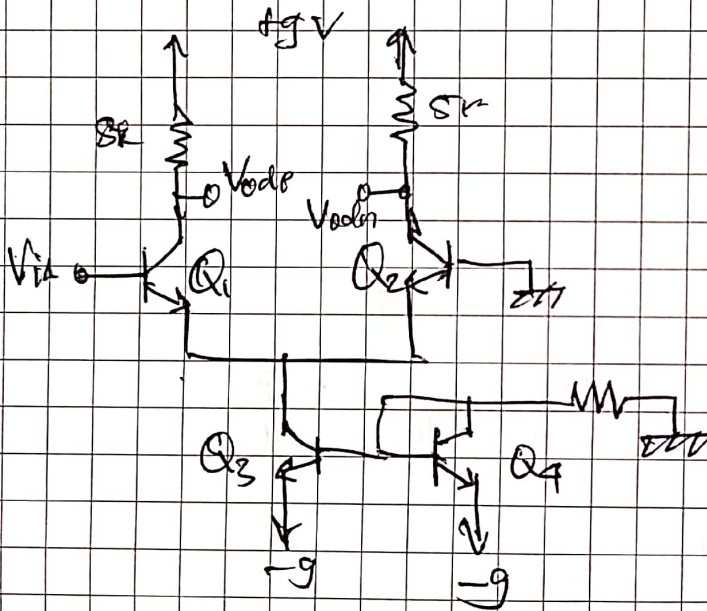 +9 V
5k
5k
Vodp
Vodn
Vid
Q1
Q2
Q3
Q4
-9
-9